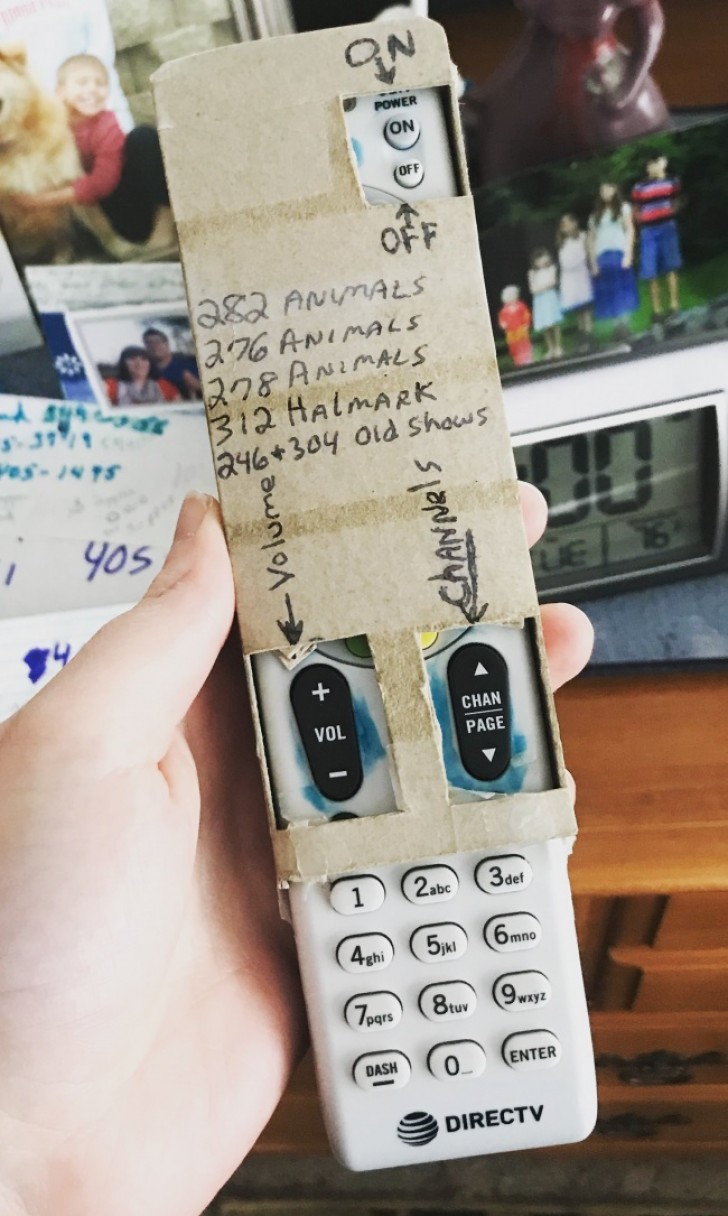 ON
POWER
ON
OFF
OFF
282 ANIMALS
276 ANIMALS
278 ANIMALS
312 HALMARK
246+304 Old Shows
Volume
CHANNElS
+
VOL
−
CHAN
PAGE
1
2abc
3def
4ghi
5jkl
6mno
7pqrs
8tuv
9wxyz
DASH
0
ENTER
DIRECTV
405